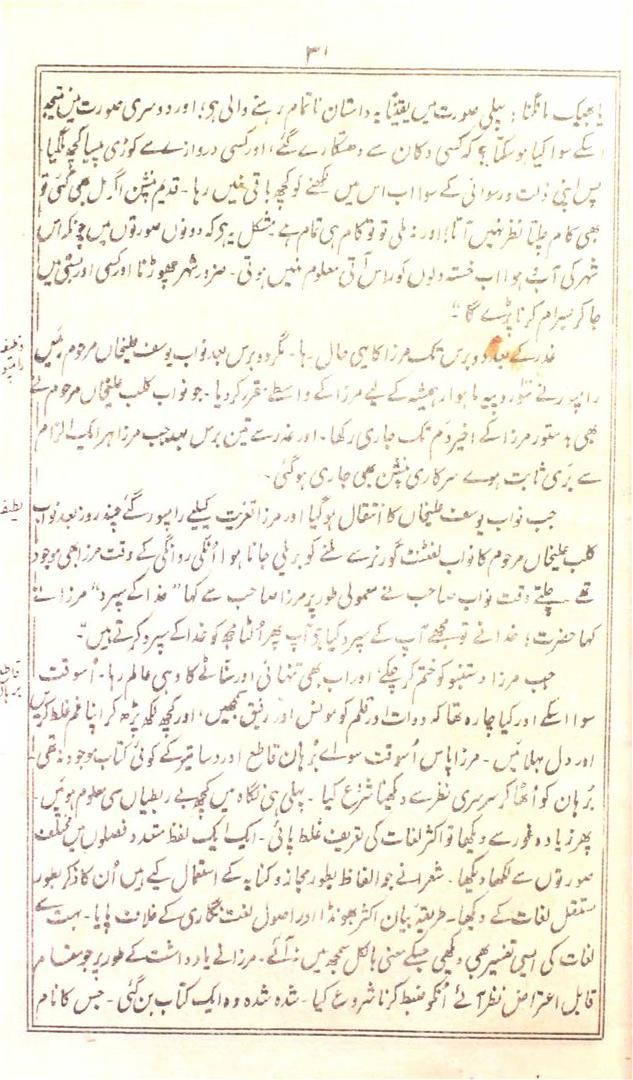 ۳۱
یا بھیک مانگنا؛ پہلی صورت میں یقیناً یہ داستان ناتمام رہنے والی ہی؛ اور دوسری صورت میں نتیجہ
اسکے سوا کیا ہو سکتا ہے کہ کسی دکان سے دھتکارے گئے، اور کسی دروازے سے کوڑی پیسا کچھ مل گیا
پس اپنی ذلت و رسوائی کے سوا اب اس میں لکھنے کو کچھ باقی نہیں رہا۔ قدیم پنشن اگر مل بھی گئی تو
بھی کام چلتا نظر نہیں آتا؛ اور نہ ملی تو تو کام ہی تمام ہے مشکل یہ ہی کہ دونوں صورتوں میں چونکہ اس
شہر کی آب و ہوا اب خستہ دلوں کو راس آتی معلوم نہیں ہوتی۔ ضرور شہر چھوڑنا اور کسی اور بستی میں
جا کر بسرام کرنا پڑے گا"
غدر کے بعد دو برس تک مرزا کا یہی حال رہا۔ مگر دو برس بعد نواب یوسف علیخاں مرحوم رئیس
رامپور نے سو روپیہ ماہوار ہمیشہ کے لیے مرزا کے واسطے مقرر کر دیا۔ جو نواب کلب علیخاں مرحوم نے
بھی بدستور مرزا کے اخیر دم تک جاری رکھا۔ اور غدر سے تین برس بعد جب مرزا ہر ایک الزام
سے بری ثابت ہوے سرکاری پنشن بھی جاری ہو گئی۔
جب نواب یوسف علیخاں کا انتقال ہو گیا اور مرزا تعزیت کیلیے رامپور گئے چند روز بعد نواب
کلب علیخاں مرحوم کا نواب لفٹنٹ گورنر سے ملنے کو بریلی جانا ہوا اُنکی روانگی کے وقت مرزا بھی موجود
تھے چلتے وقت نواب صاحب نے معمولی طور پر مرزا صاحب سے کہا "خدا کے سپرد" مرزا نے
کہا حضرت؛ خدا نے تو مجھے آپ کے سپرد کیا ہی آپ پھر اُلٹا مجھ کو خدا کے سپرد کرتے ہیں"۔
جب مرزا دستنبو کو ختم کر چکے، اور اب بھی تنہائی اور سناٹے کا وہی عالم رہا۔ اُسوقت
سوا اسکے اور کیا چارہ تھا کہ دوات اور قلم کو مونس اور رفیق سمجھیں، اور کچھ لکھ پڑھ کر اپنا غم غلط کریں
اور دل بہلائیں۔ مرزا پاس اُسوقت سواے بُرہان قاطع اور دساتیر کے کوئی کتاب موجود نہ تھی
بُرہان کو اُٹھا کر سرسری نظر سے دیکھنا شروع کیا۔ پہلی ہی نگاہ میں کچھ بے ربطیاں سی معلوم ہوئیں۔
پھر زیادہ غور سے دیکھا تو اکثر لغات کی تعریف غلط پائی۔ ایک ایک لفظ متعدد فصلوں میں مختلف
صورتوں سے لکھا دیکھا۔ شعرا نے جو الفاظ بطور مجاز و کنایہ کے استعمال کیے ہیں اُن کا ذکر بطور
مستقل لغات کے دیکھا۔ طریقۂ بیان اکثر بھونڈا اور اصول لغت نگاری کے خلاف پایا۔ بہت سے
لغات کی ایسی تفسیر بھی دیکھی جسکے معنی بالکل سمجھ میں نہ آئے۔ مرزا نے یادداشت کے طور پر جو مقام
قابل اعتراض نظر آئے اُنکو ضبط کرنا شروع کیا۔ شدہ شدہ وہ ایک کتاب بن گئی۔ جس کا نام